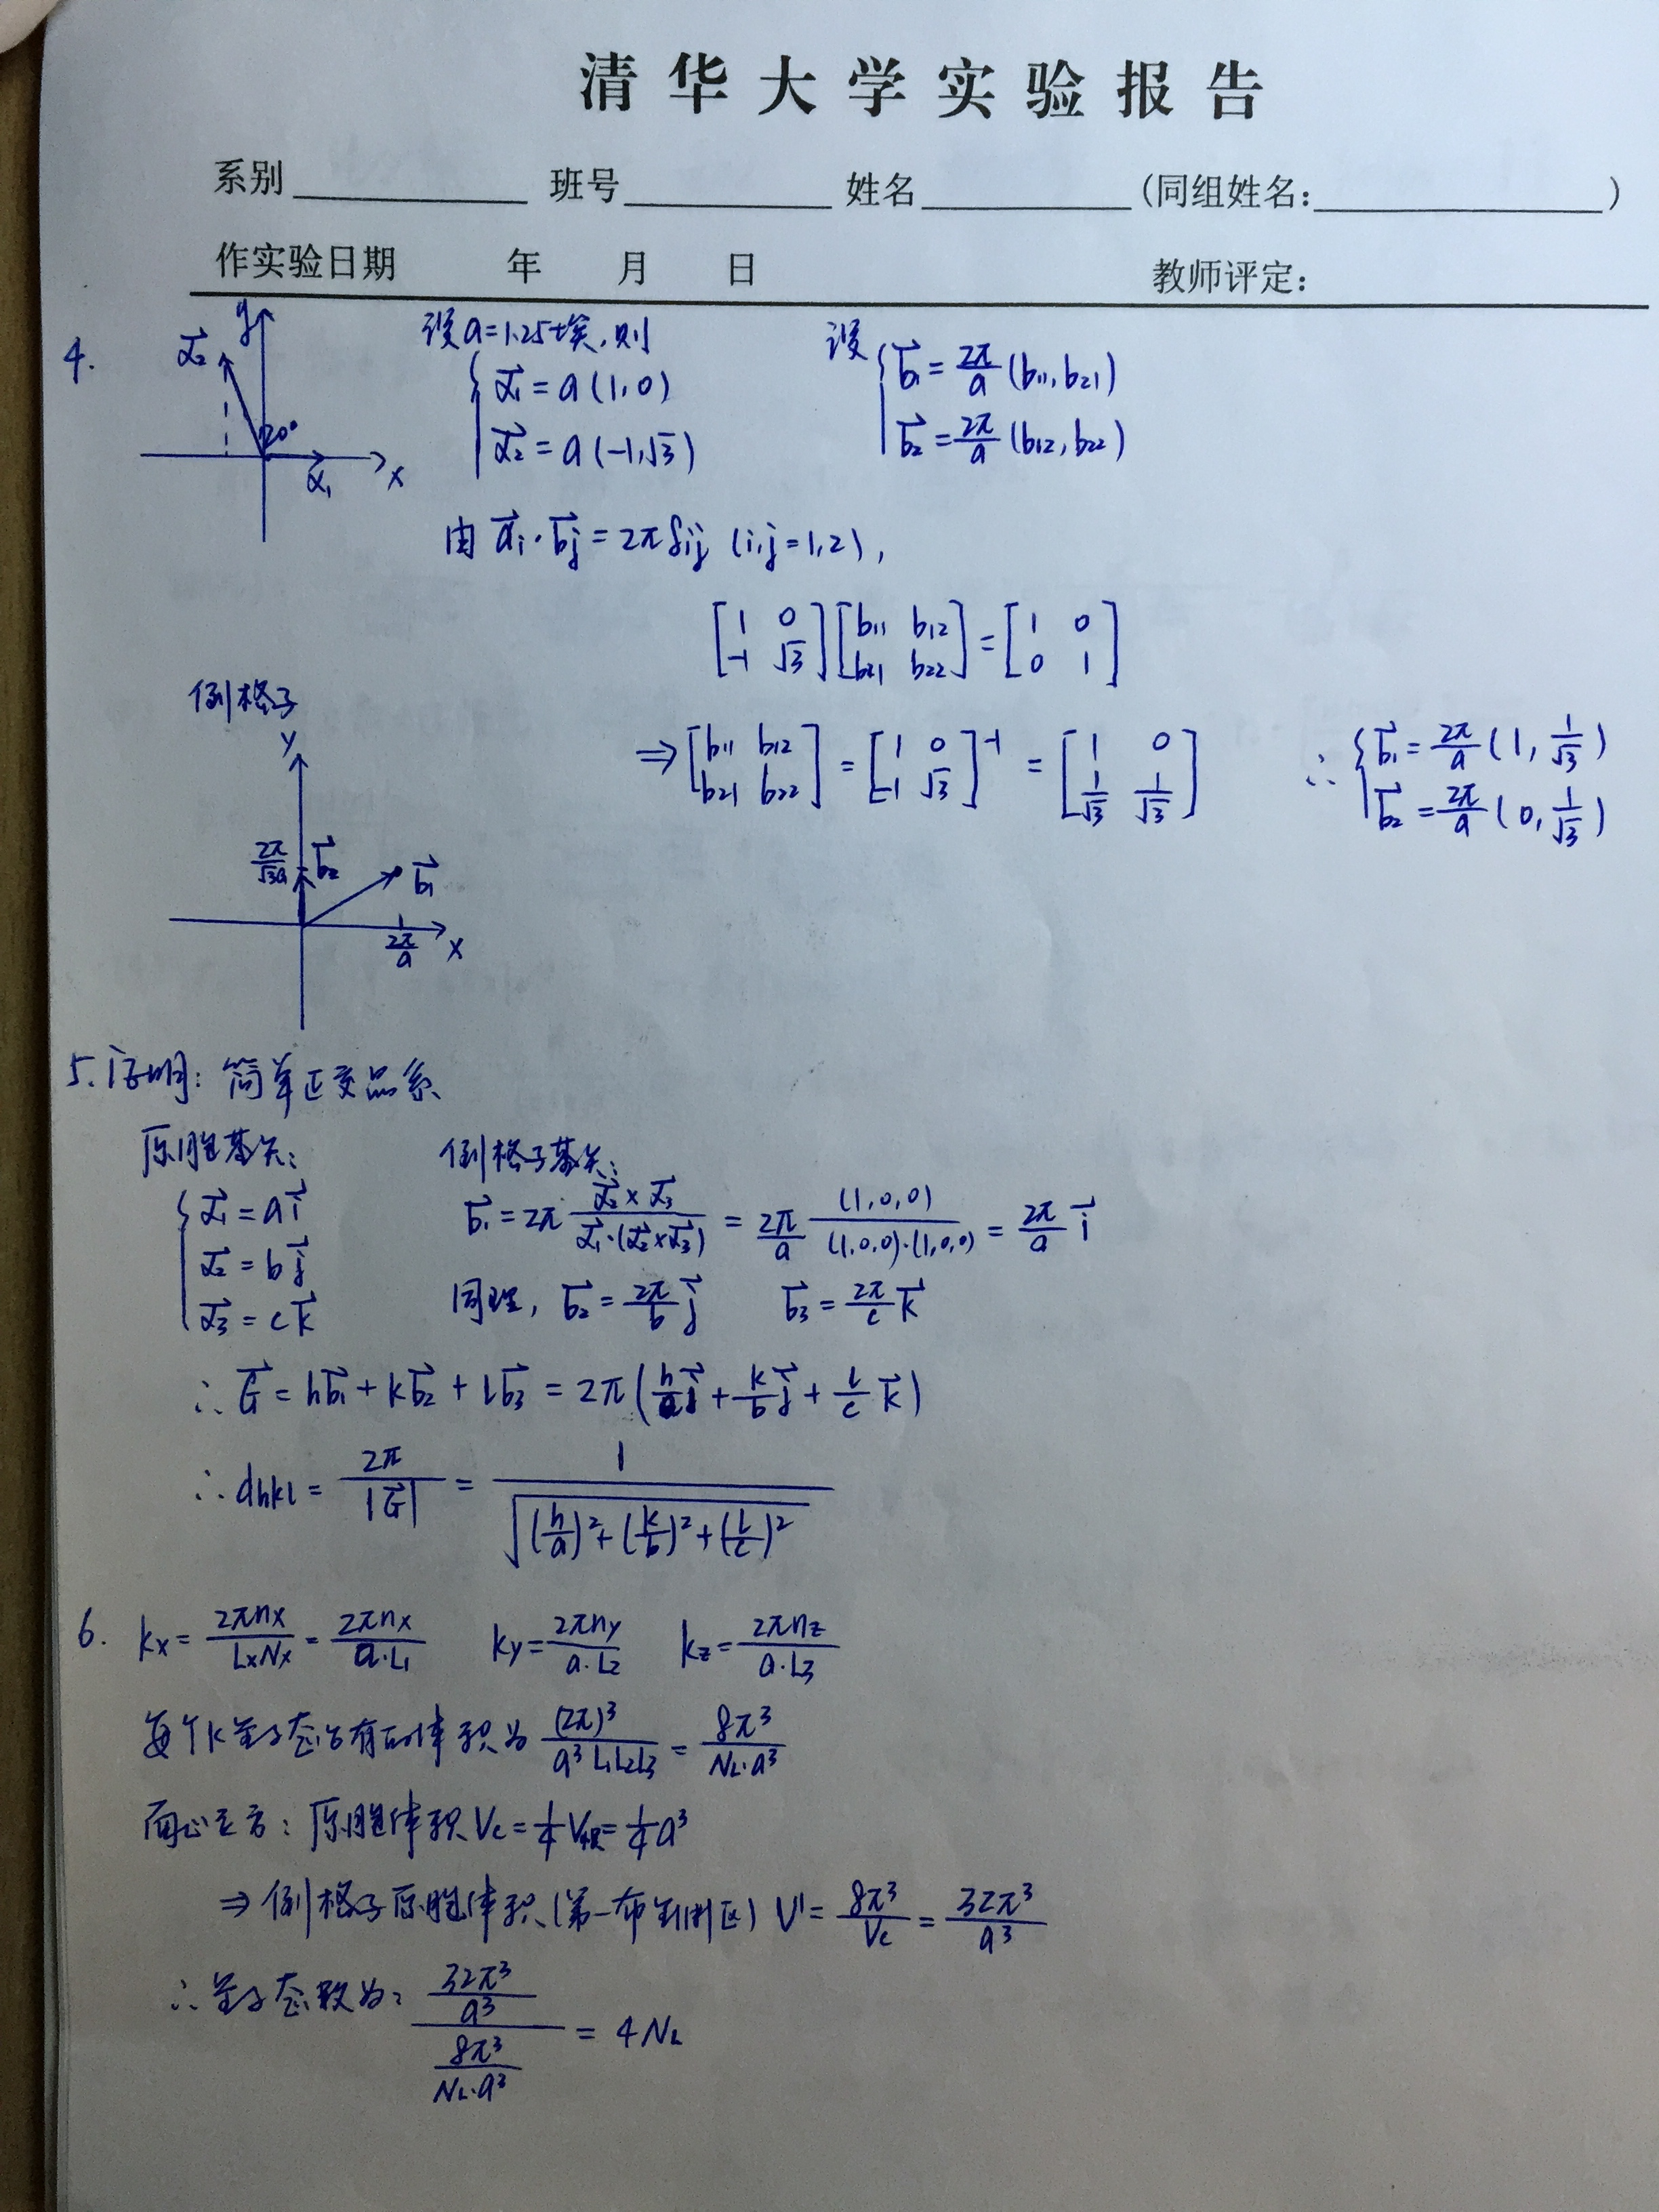 清华大学实验报告
系别 班号 姓名 (同组姓名: )
作实验日期 年 月 日 教师评定:
4.
y
α⃗₂
120°
α₁ x
设a=1.25埃,则
{ α⃗₁ = a(1,0)
α⃗₂ = a(-1,√3)
设 { b⃗₁ = 2π/a (b₁₁,b₂₁)
b⃗₂ = 2π/a (b₁₂,b₂₂)
由 a⃗ᵢ·b⃗ⱼ = 2πδᵢⱼ (i,j=1,2),
[1 0; -1 √3][b₁₁ b₁₂; b₂₁ b₂₂] = [1 0; 0 1]
⇒ [b₁₁ b₁₂; b₂₁ b₂₂] = [1 0; -1 √3]⁻¹ = [1 0; 1/√3 1/√3]
∴ { b⃗₁ = 2π/a (1, 1/√3)
b⃗₂ = 2π/a (0, 1/√3)
倒格子
y
2π/√3a b⃗₂ b⃗₁
2π/a x
5. 证明: 简单正交晶系
原胞基矢:
{ α⃗₁ = a i⃗
α⃗₂ = b j⃗
α⃗₃ = c k⃗
倒格子基矢:
b⃗₁ = 2π (α⃗₂×α⃗₃)/(α⃗₁·(α⃗₂×α⃗₃)) = 2π/a (1,0,0)/((1,0,0)·(1,0,0)) = 2π/a i⃗
同理, b⃗₂ = 2π/b j⃗ b⃗₃ = 2π/c k⃗
∴ G⃗ = hb⃗₁ + kb⃗₂ + lb⃗₃ = 2π(h/a i⃗ + k/b j⃗ + l/c k⃗)
∴ dhkl = 2π/|G⃗| = 1/√((h/a)² + (k/b)² + (l/c)²)
6. kx = 2πnx/LxNx = 2πnx/a·L₁ ky = 2πny/a·L₂ kz = 2πnz/a·L₃
每个k量子态占有的体积为 (2π)³/a³L₁L₂L₃ = 8π³/N_L·a³
面心立方: 原胞体积 Vc = 1/4 V = 1/4 a³
⇒ 倒格子原胞体积(第一布里渊区) V' = 8π³/Vc = 32π³/a³
∴ 量子态数为: (32π³/a³)/(8π³/N_L·a³) = 4N_L